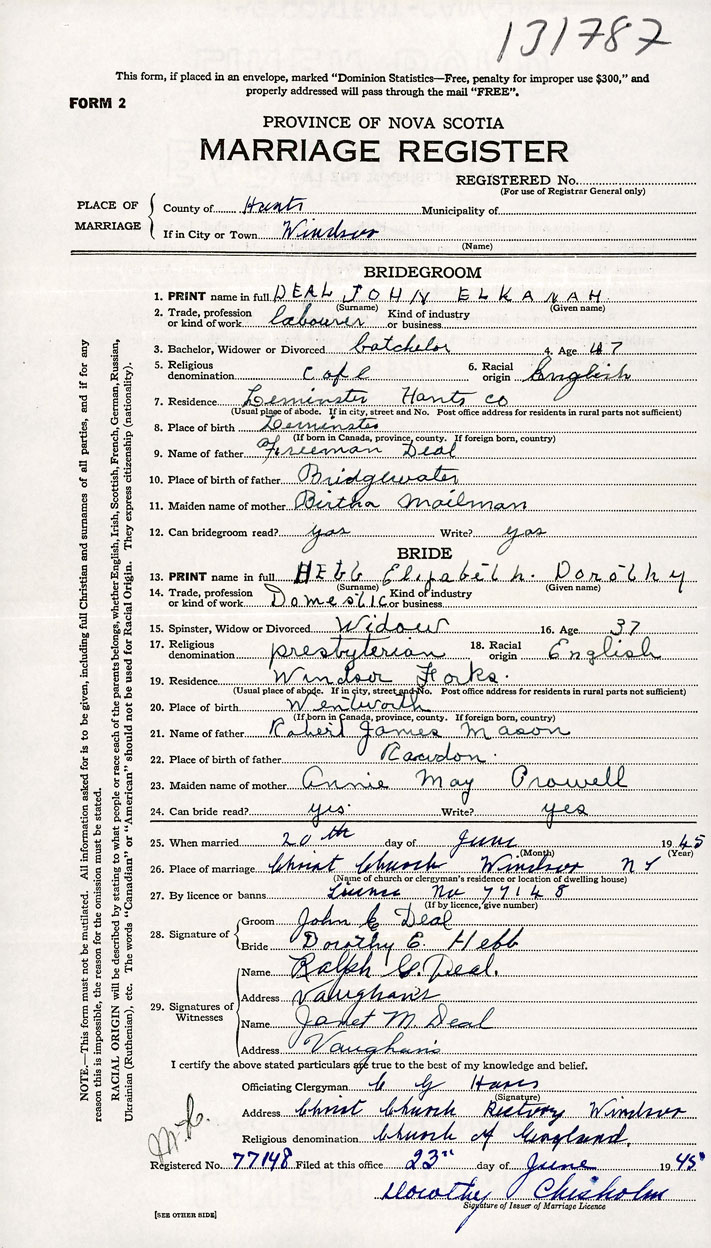 131787
This form, if placed in an envelope, marked "Dominion Statistics—Free, penalty for improper use $300," and
properly addressed will pass through the mail "FREE".
FORM 2
PROVINCE OF NOVA SCOTIA
MARRIAGE REGISTER
REGISTERED No.
(For use of Registrar General only)
PLACE OF MARRIAGE
County of Hants Municipality of
If in City or Town Windsor
(Name)
BRIDEGROOM
1. PRINT name in full DEAL JOHN ELKANAH
(Surname) (Given name)
2. Trade, profession or kind of work labourer Kind of industry or business
3. Bachelor, Widower or Divorced batchelor 4. Age 47
5. Religious denomination C of E 6. Racial origin English
7. Residence Leminster Hants Co
(Usual place of abode. If in city, street and No. Post office address for residents in rural parts not sufficient)
8. Place of birth Leminster
(If born in Canada, province, county. If foreign born, country)
9. Name of father Freeman Deal
10. Place of birth of father Bridgewater
11. Maiden name of mother Birtha Mailman
12. Can bridegroom read? yas Write? yas
BRIDE
13. PRINT name in full HEbb Elizabeth. Dorothy
(Surname) (Given name)
14. Trade, profession or kind of work Domestic Kind of industry or business
15. Spinster, Widow or Divorced Widow 16. Age 37
17. Religious denomination presbyterian 18. Racial origin English
19. Residence Windsor Forks.
(Usual place of abode. If in city, street and No. Post office address for residents in rural parts not sufficient)
20. Place of birth Wentworth
(If born in Canada, province, county. If foreign born, country)
21. Name of father Robert James Mason
22. Place of birth of father Rawdon.
23. Maiden name of mother Annie May Prowell
24. Can bride read? yes. Write? yes
25. When married 20th day of June 1945
(Month) (Year)
26. Place of marriage Christ Church Windsor NS
(Name of church or clergyman's residence or location of dwelling house)
27. By licence or banns License No 77148
(If by licence, give number)
28. Signature of
Groom John E Deal
Bride Dorothy E. Hebb
29. Signatures of Witnesses
Name Ralph G. Deal.
Address Vaughans
Name Janet M. Deal
Address Vaughans
I certify the above stated particulars are true to the best of my knowledge and belief.
Officiating Clergyman C G
(Signature)
Address Christ Church Rectory Windsor
Religious denomination Church of England.
Registered No. 77148 Filed at this office 23" day of June 1945
Dorothy Chisholm
Signature of Issuer of Marriage Licence
[SEE OTHER SIDE]
NOTE.—This form must not be mutilated. All information asked for is to be given, including full Christian and surnames of all parties, and if for any
reason this is impossible, the reason for the omission must be stated.
RACIAL ORIGIN will be described by stating to what people or race each of the parents belongs, whether English, Irish, Scottish, French, German, Russian,
Ukrainian (Ruthenian), etc. The words "Canadian" or "American" should not be used for Racial Origin. They express citizenship (nationality).